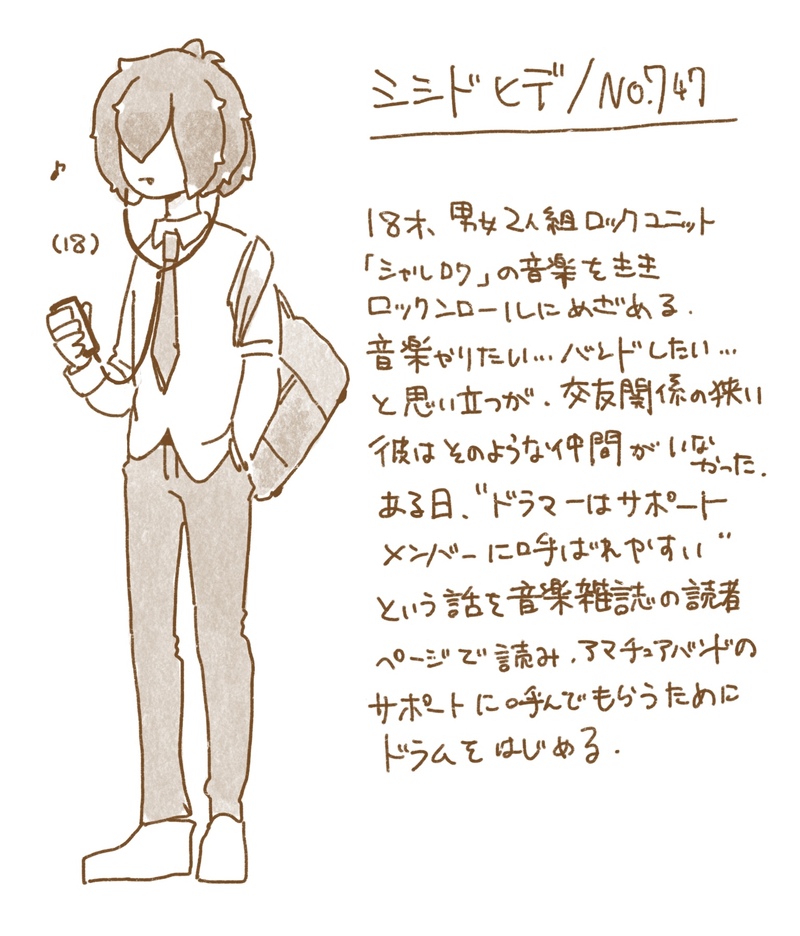 シシド ヒデ/No.747
♪
(18)
18才、男女2人組ロックユニット
「シャルロク」の音楽をきき
ロックンロールにめざめる.
音楽やりたい…バンドしたい…
と思い立つが、交友関係の狭い
彼はそのような仲間がいなかった.
ある日、“ドラマーはサポート
メンバーに呼ばれやすい”
という話を音楽雑誌の読者
ページで読み、アマチュアバンドの
サポートに呼んでもらうために
ドラムをはじめる.